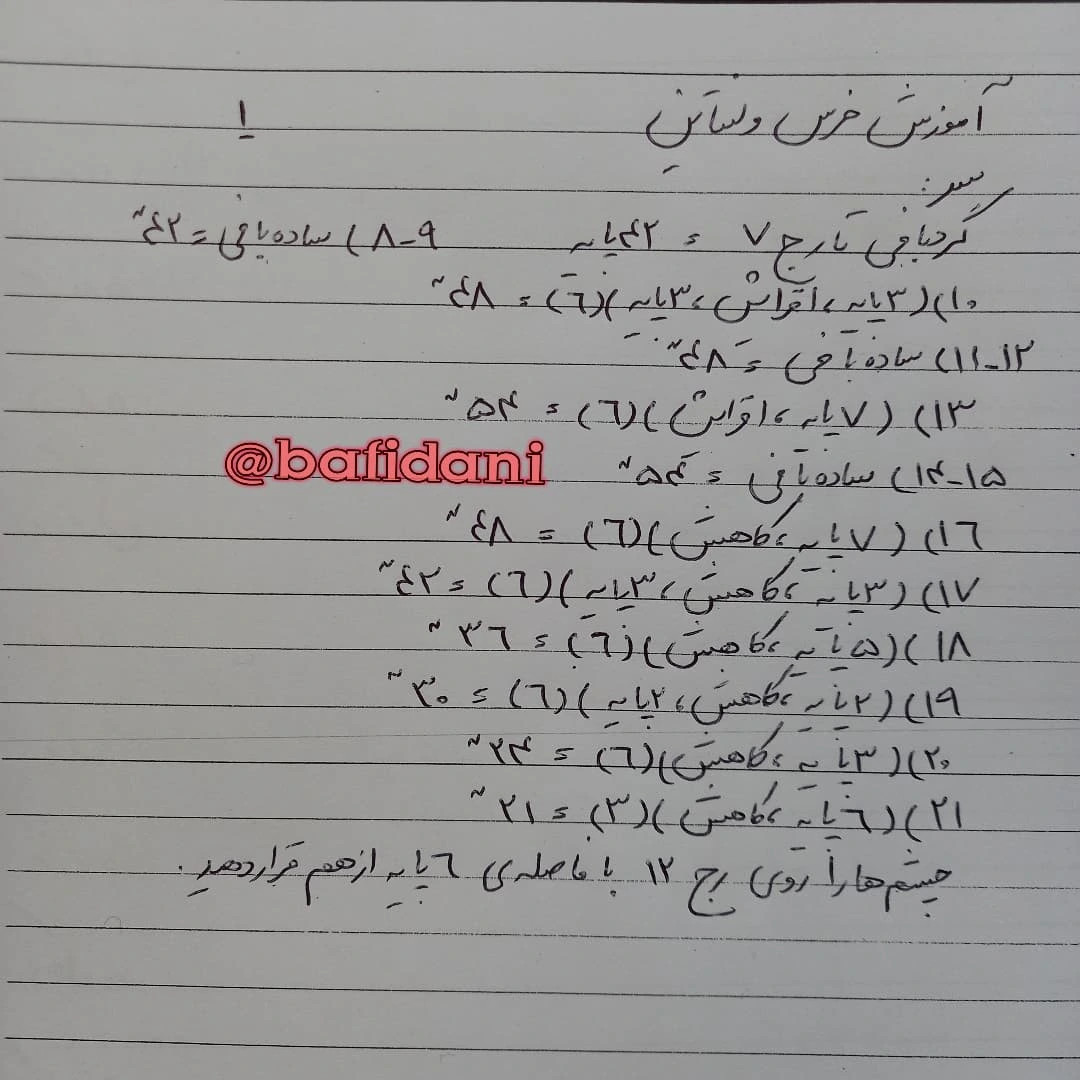 آموزش خرس ولنتاین
۱
سر:
گردبافی تا رج ۷ = ۴۲ پایه
۸-۹) ساده بافی = ۴۲ "
۱۰) (۳ پایه، افزایش، ۳ پایه)(۶) = ۴۸ "
۱۱-۱۲) ساده بافی = ۴۸ "
۱۳) (۷ پایه، افزایش)(۶) = ۵۴ "
۱۴-۱۵) ساده بافی = ۵۴ "
@bafidani
۱۶) (۷ پایه، کاهش)(۶) = ۴۸ "
۱۷) (۳ پایه، کاهش، ۳ پایه)(۶) = ۴۲ "
۱۸) (۵ پایه، کاهش)(۶) = ۳۶ "
۱۹) (۲ پایه، کاهش، ۲ پایه)(۶) = ۳۰ "
۲۰) (۳ پایه، کاهش)(۶) = ۲۴ "
۲۱) (۶ پایه، کاهش)(۳) = ۲۱ "
چشم ها را روی رج ۱۲ با فاصله ی ۶ پایه از هم قرار دهید.